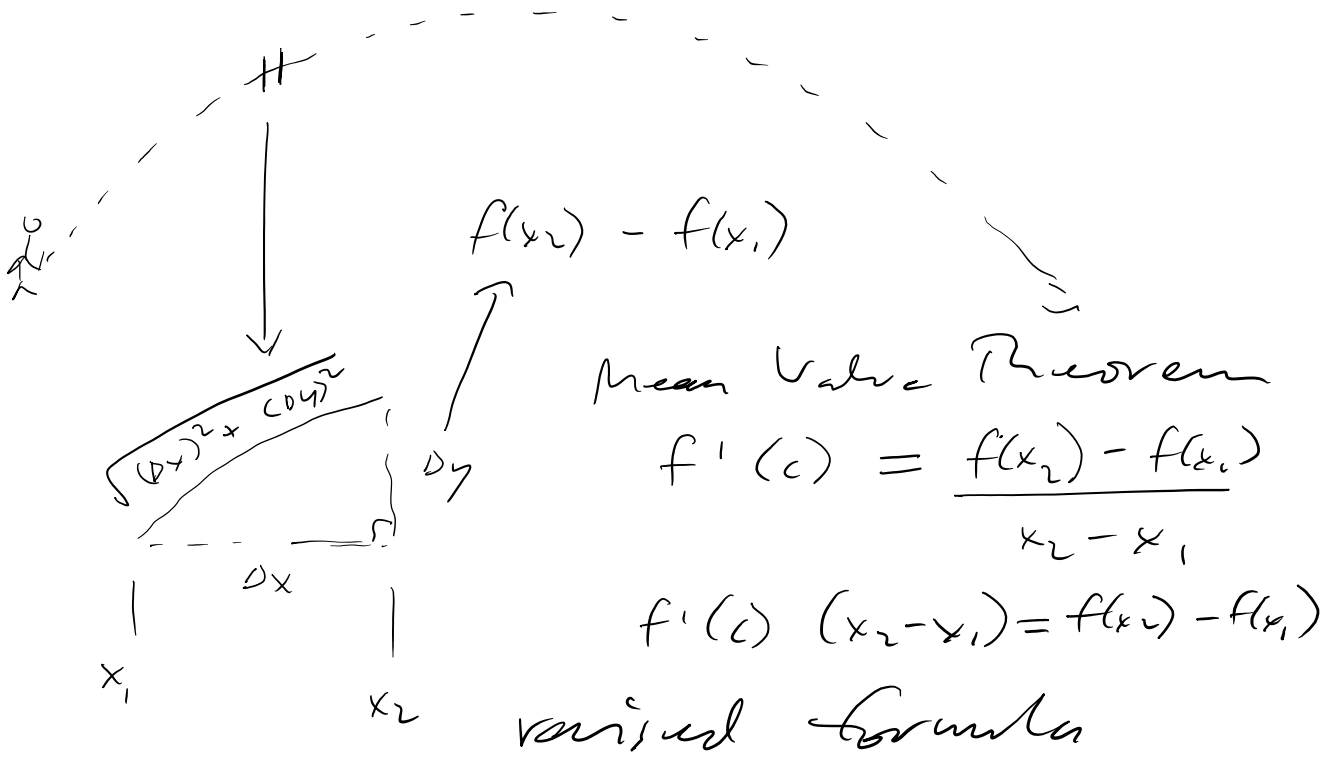 f(x₂) - f(x₁)
√(Dx)² + (Dy)²
Dy
Dx
x₁
x₂
Mean Value Theorem
f'(c) = f(x₂) - f(x₁)
x₂ - x₁
f'(c) (x₂-x₁) = f(x₂) - f(x₁)
revised formula